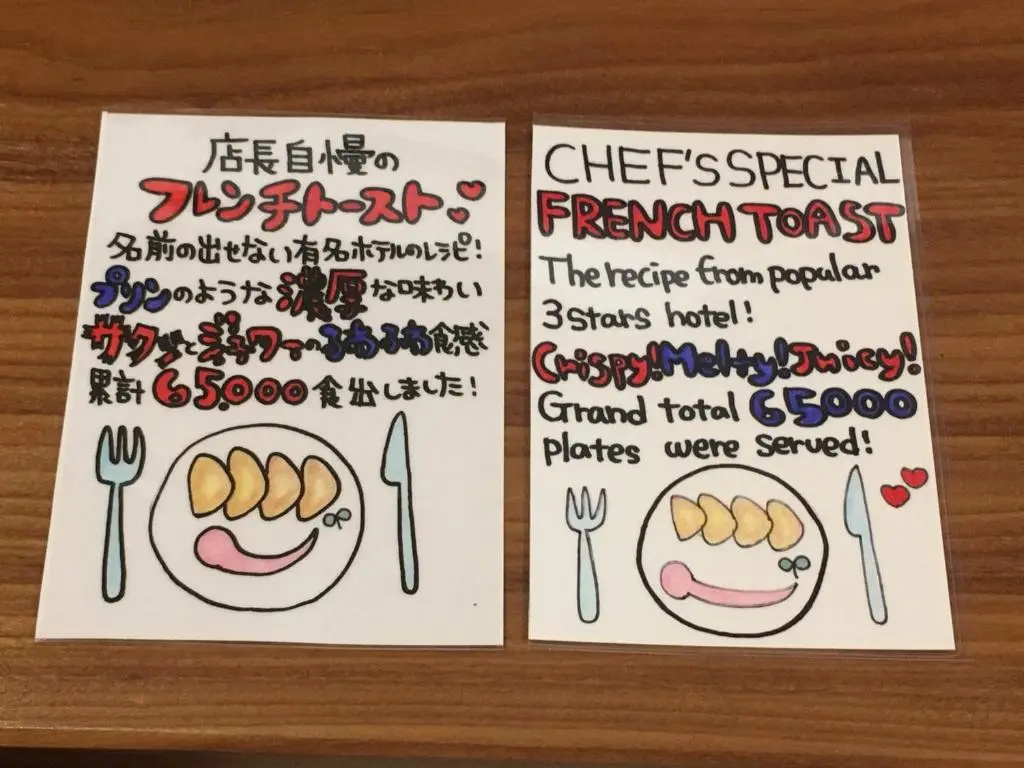 店長自慢の
フレンチトースト
名前の出せない有名ホテルのレシピ!
プリンのような濃厚な味わい
サクッとジュワーのふわふわ食感
累計65.000食出しました!
CHEF'S SPECIAL
FRENCH TOAST
The recipe from popular
3 stars hotel!
Crispy! Melty! Juicy!
Grand total 65000
plates were served!